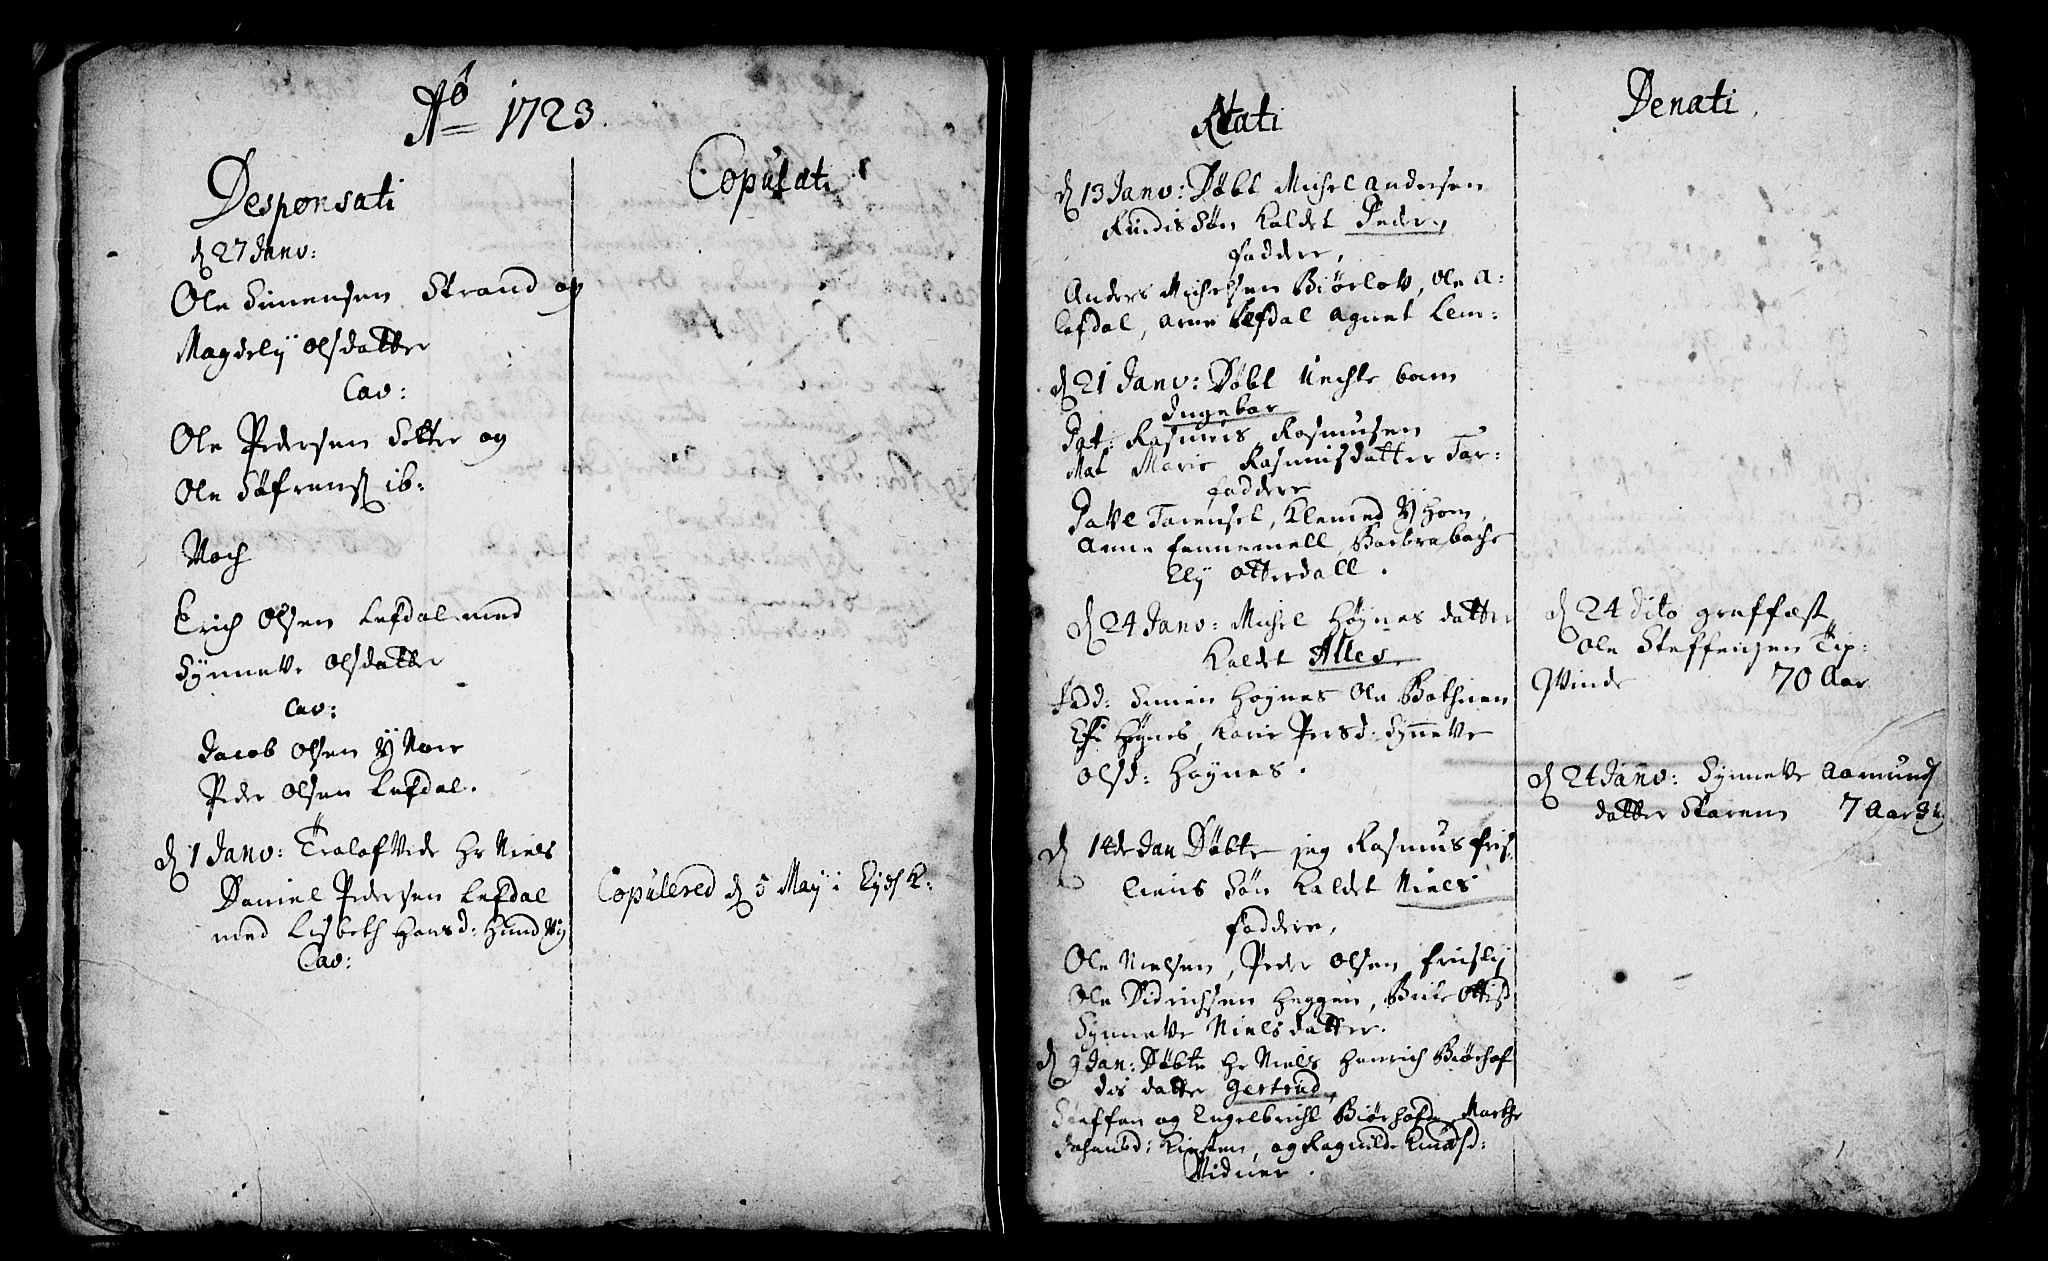 Ao 1723.
Desponsati
d 27 Janv:
Ole Simensen Strand og
Magdely Olsdatter
Cav:
Ole Pedersen Sætter og
Ole Søfrens ib:
Noch
Erich Olsen Lefdal med
Synneve Olsdatter
Cav:
Jacob Olsen Y Nore
Peder Olsen Lefdal.
d 1 Janv: Trolofvede Hr Niels
Daniel Pedersen Lefdal
med Lisbeth Hansd: Hundvy
Cav:
Copulati
Copulered d 5 May i Eyds K:
Nati
d 13 Janv: Døbt Michel Andersen
Rindis Søn Kaldet Peder,
Faddere,
Anders Michelsen Biørlov, Ole A:
Lefdal, Arne Lefdal Agnet Lem:
d 21 Janv: Døbt Uechte barn
Ingebor
Pat: Rasmus Rasmusen
Mat Marie Rasmusdatter Tar:
Faddere
Pave Tarensel, Klemed Y Horn,
Anne Fennemell, Barbra bache
Ely Otterdall.
d 24 Janv: Michel Høynes datter
Kaldet Alles,
Fadd: Simen Høynes Ole Bothnen
Høynes, Karie Persd: Synneve
Olsd: Høynes.
d 14de Jan Døbte jeg Rasmus Fris:
Søn Kaldet Niels
Faddere,
Ole Nielsen, Peder Olsen Friisly
Ole Didrichsen Heggen, Birte
Synneve Nielsdatter.
d 9 Jan: Døbte Hr Niels Henrich Biørhof
dis datter Gertrud,
Steffen og Engelbricht Biørhofde, Marthe
Johansd: Kirsten, og Ragnilde Knudsd:
Vidner.
Denati
d 24 dito græffæst
Ole Steffensen Tip:
Qvinde 70 Aar
d 24 Janv: Synneve Aamunds
datter Skarem 7 Aar